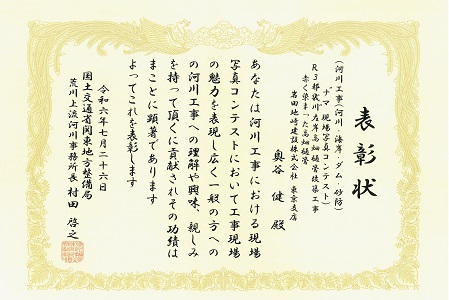 表彰状
(河川工事(河川・海岸・ダム・砂防)
「ナマ」現場写真コンテスト)
R3都幾川左岸高畑樋管改築工事
赤く染まった高畑樋管
岩田地崎建設株式会社 東京支店
奥谷 健 殿
あなたは河川工事における現場
写真コンテストにおいて工事現場
の魅力を表現し広く一般の方への
の河川工事への理解や興味、親しみ
を持って頂くに貢献されその功績は
まことに顕著であります
よってこれを表彰します
令和六年七月二十六日
国土交通省関東地方整備局
荒川上流河川事務所長 村田 啓之